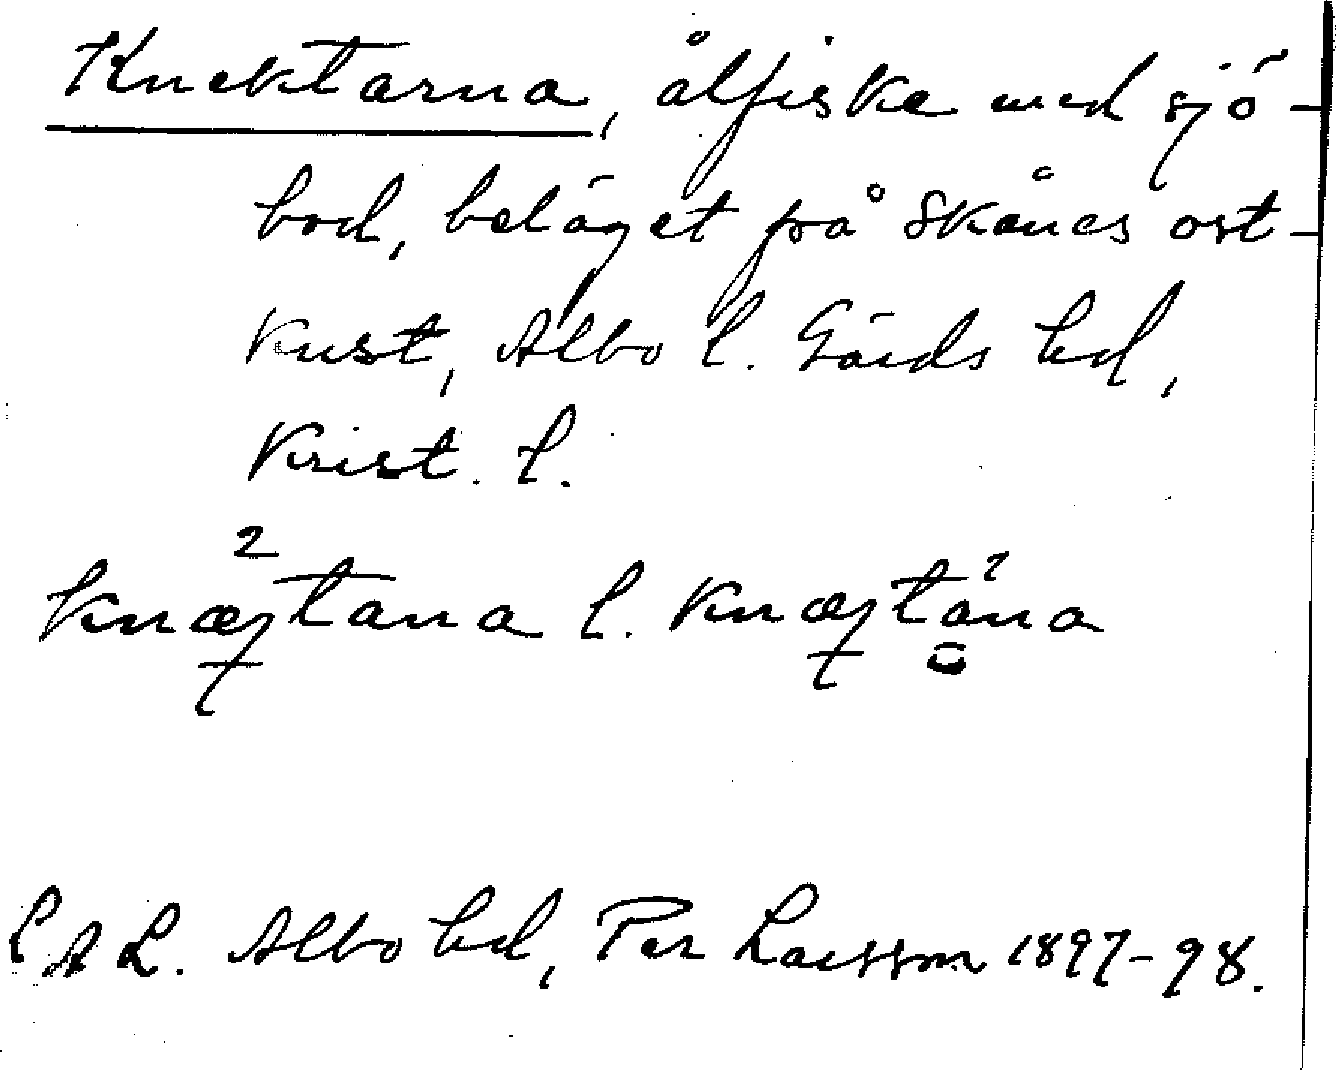 Knektarna, ålfiske med sjö-
bod, beläget på Skånes ost-
kust, Albo l. Gärds hd,
Krist. l.
LAL. Albo hd, Per Larsson 1897-98.